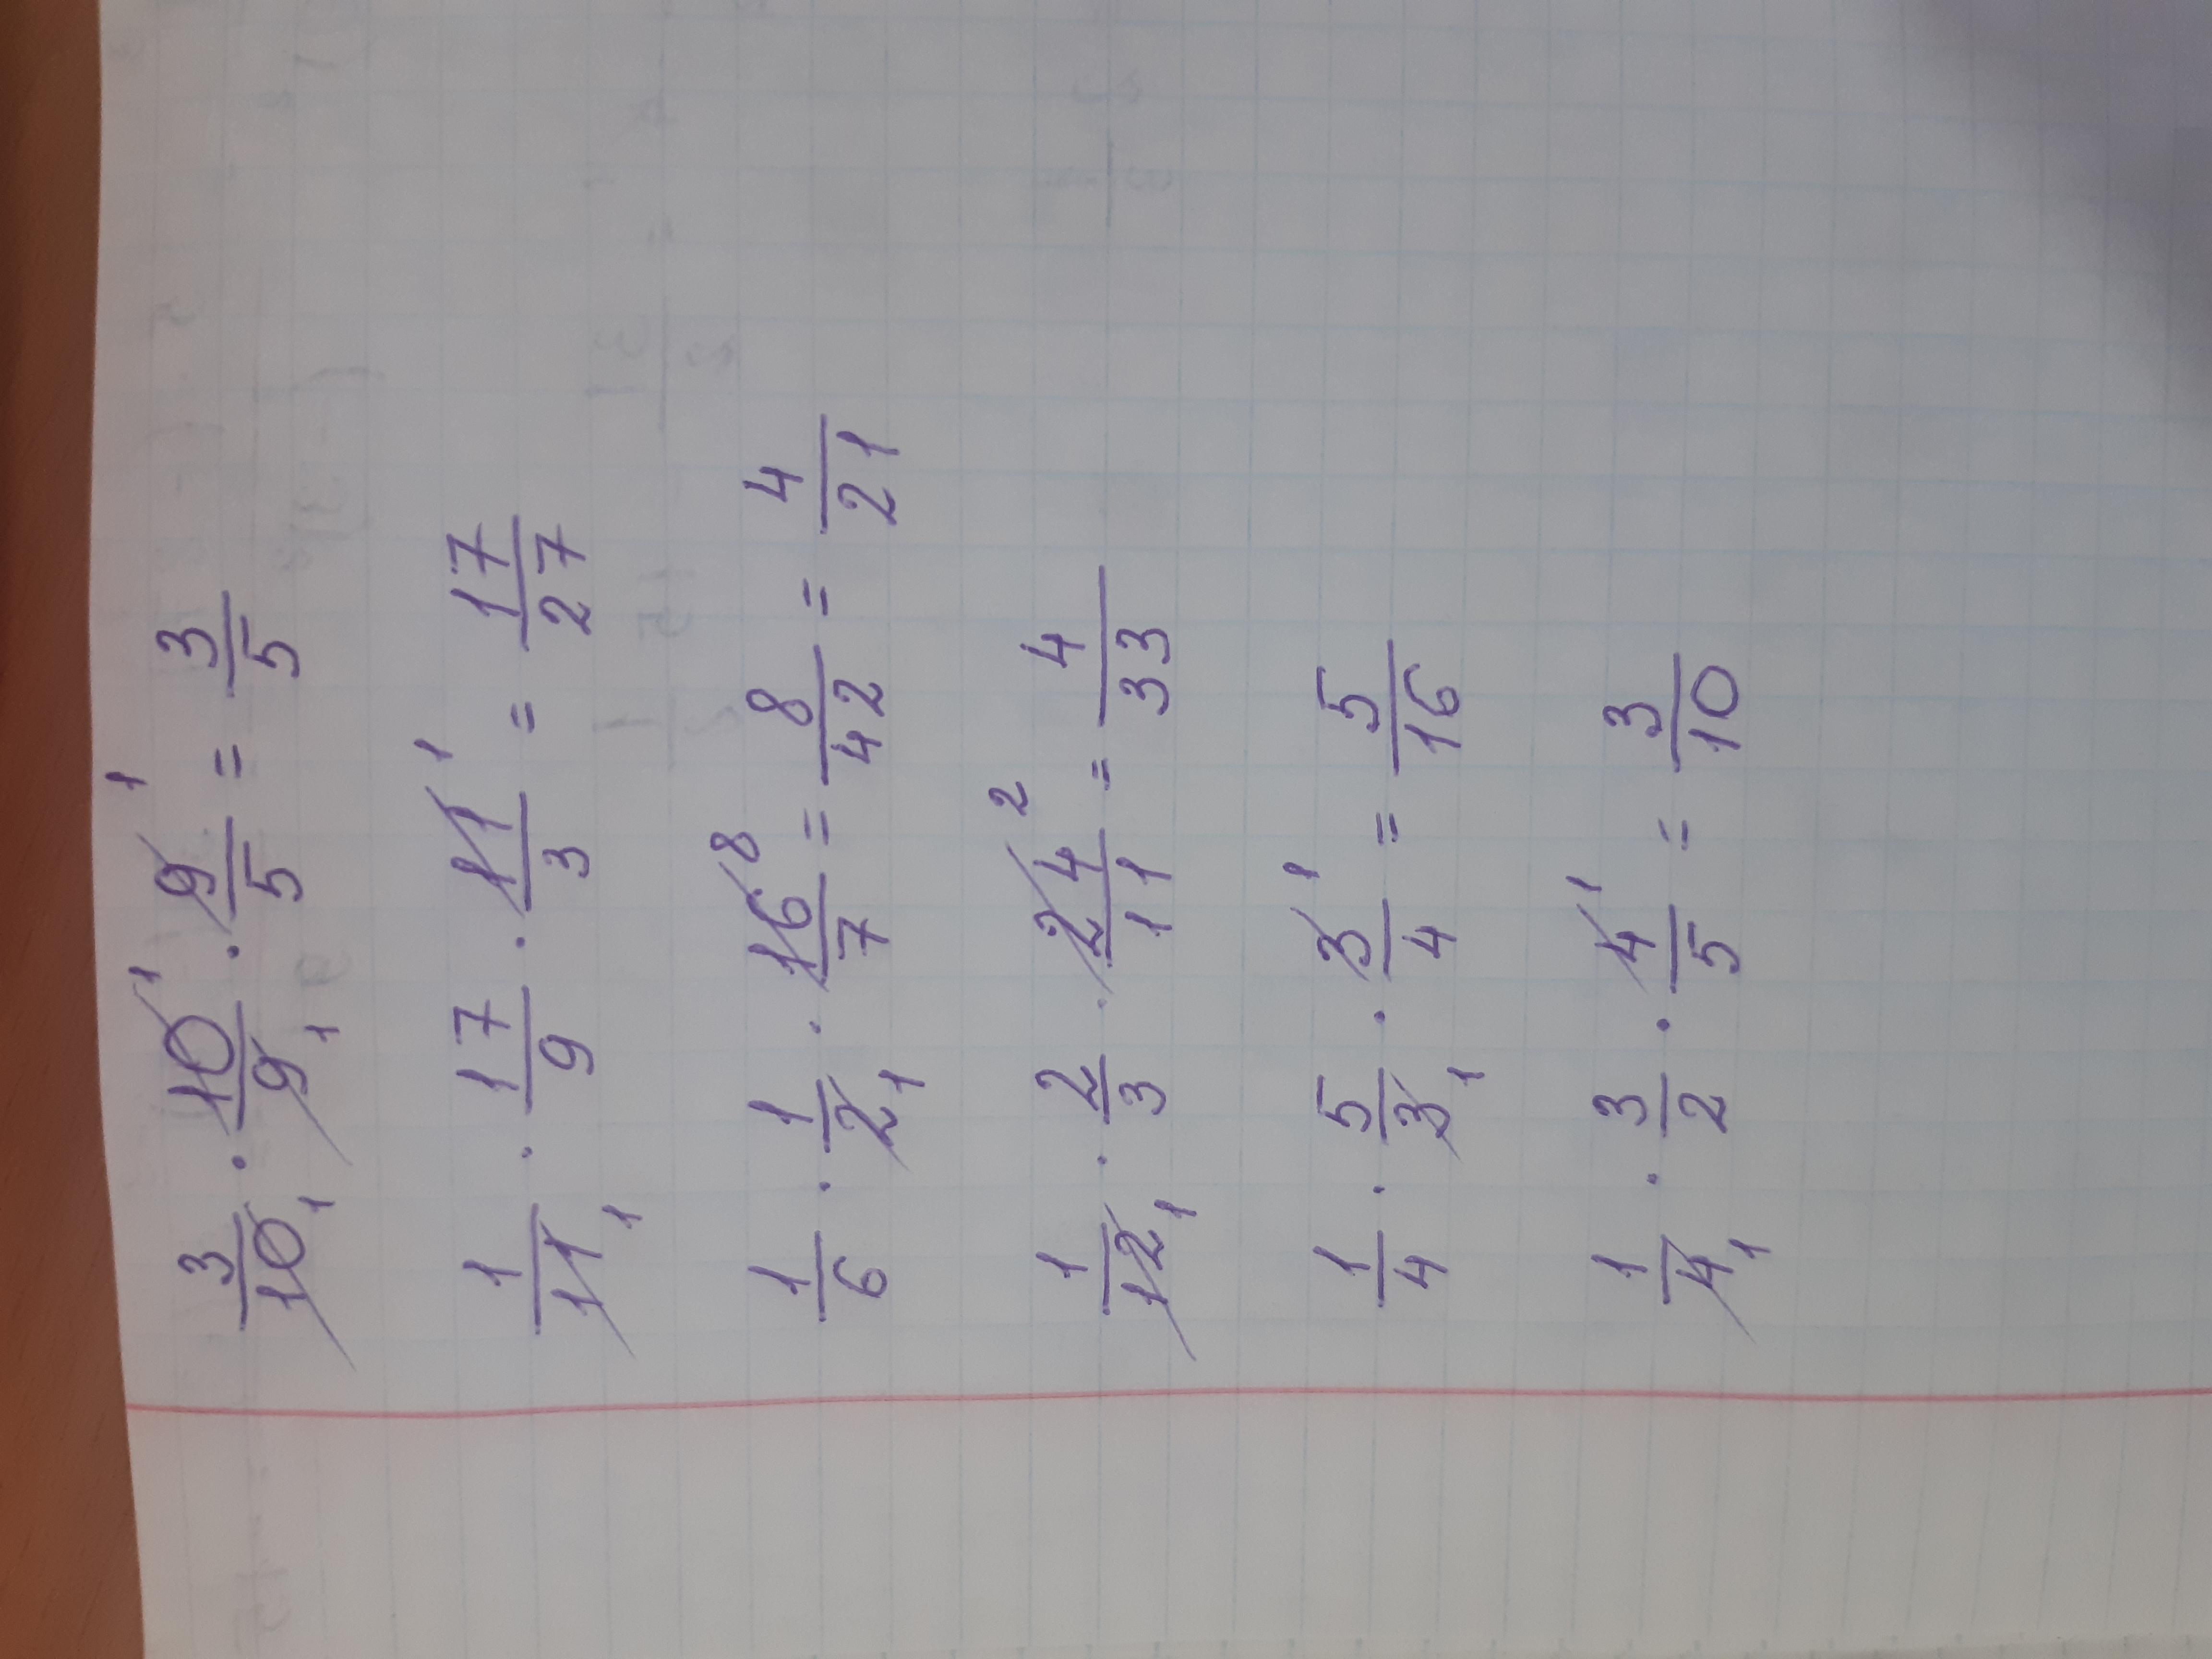 3/10 · 10/9 · 9/5 = 3/5
1/11 · 17/9 · 11/3 = 17/27
1/6 · 1/2 · 16/7 = 8/42 = 4/21
1/12 · 2/3 · 24/11 = 4/33
1/4 · 5/3 · 3/4 = 5/16
1/4 · 3/2 · 4/5 = 3/10